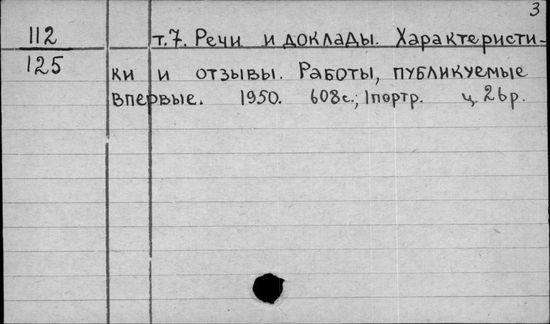 3
112 т.7. Речи и доклады. Характеристи-
125 ки и отзывы. Работы, публикуемые
впервые. 1950. 608с.; 1портр. ц. 26р.